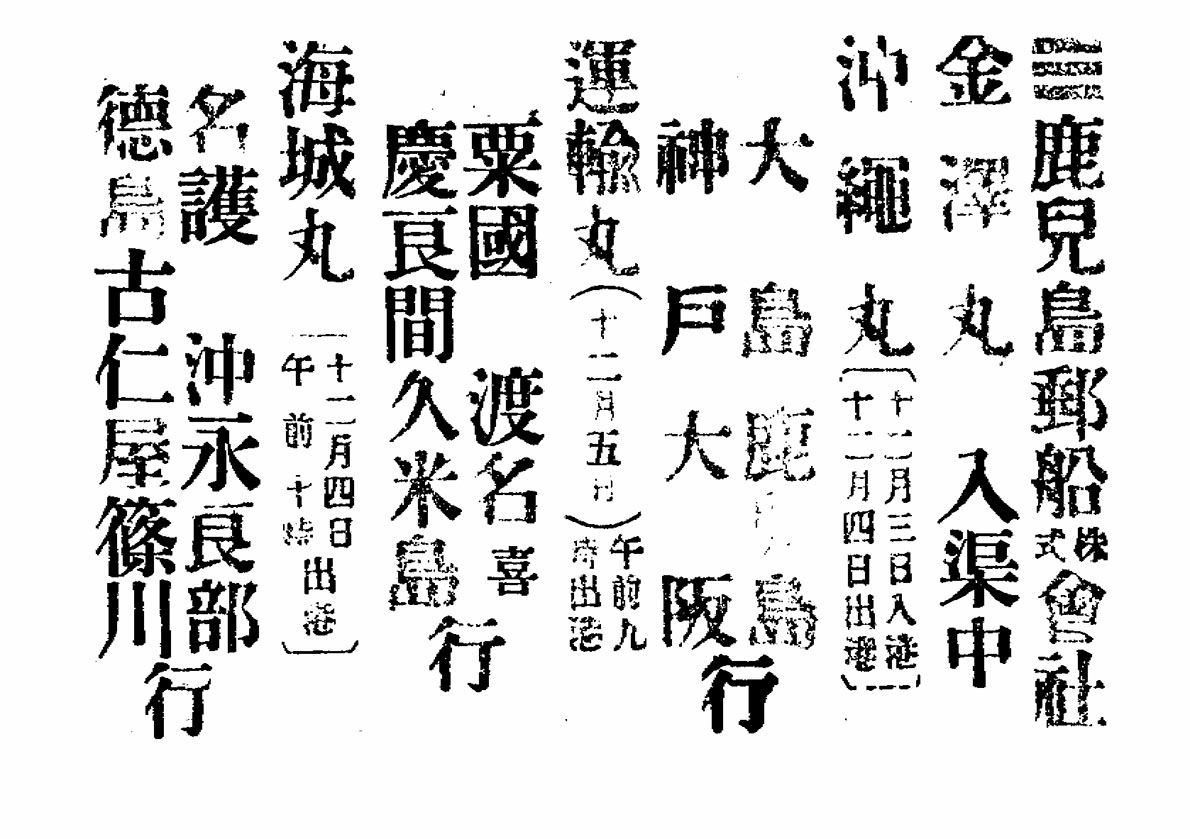 鹿兒島郵船株式會社
金澤丸 入渠中
沖繩丸
十二月三日入港
十二月四日出港
大島鹿 島
神戸大阪
行
運輸丸
(十二月五日)
午前九
時出港
粟國 渡名喜
慶良間久米島
行
海城丸
十二月四日
午前十時
出港
名護 沖永良部
德島古仁屋篠川
行